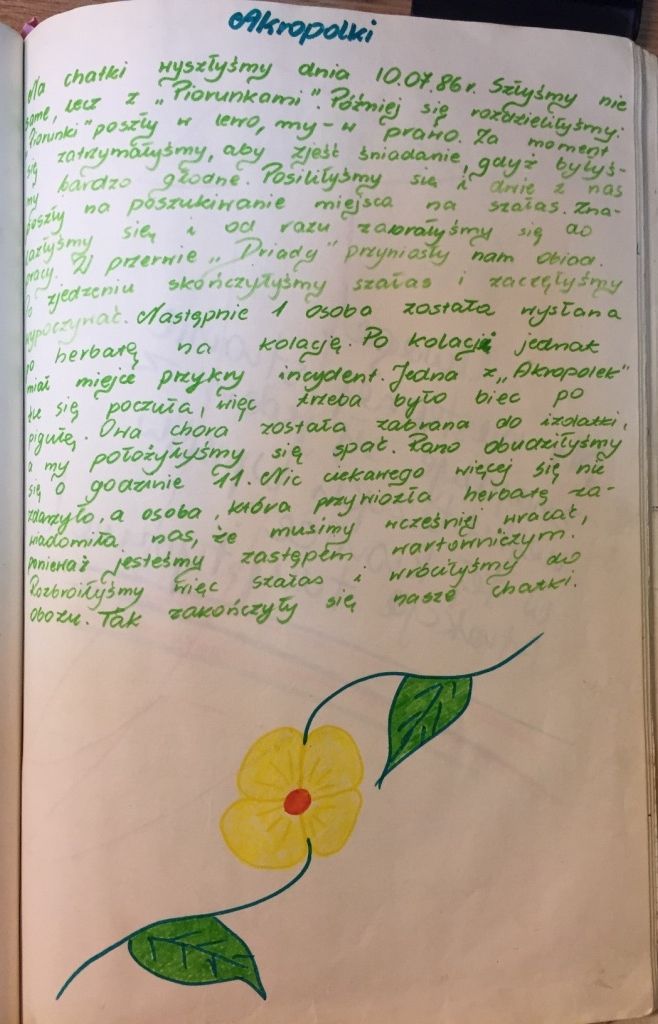 Akropolki
Na chatki wyszłyśmy dnia 10.07.86r. Szłyśmy nie
same, lecz z „Piorunkami". Później się rozdzieliłyśmy:
"Piorunki" poszły w lewo, my - w prawo. Za moment
się zatrzymałyśmy, aby zjeść śniadanie, gdyż byłyś-
my bardzo głodne. Posiliłyśmy się i dwie z nas
poszły na poszukiwanie miejsca na szałas. Zna-
lazłyśmy się i od razu zabrałyśmy się do
pracy. W przerwie „Driady" przyniosły nam obiad.
Po zjedzeniu skończyłyśmy szałas i zaczęłyśmy
wypoczywać. Następnie 1 osoba została wysłana
po herbatę na kolację. Po kolacji jednak
miał miejsce przykry incydent. Jedna z „Akropolek"
źle się poczuła, więc trzeba było biec po
pigułę. Ona chora została zabrana do izolatki,
a my położyłyśmy się spać. Rano obudziłyśmy
się o godzinie 11. Nic ciekawego więcej się nie
zdarzyło, a osoba, która przyniozła herbatę za-
wiadomiła nas, że musimy wcześniej wracać,
ponieważ jesteśmy zastępem wartowniczym.
Rozbroiłyśmy więc szałas i wróciłyśmy do
obozu. Tak zakończyły się nasze chatki.